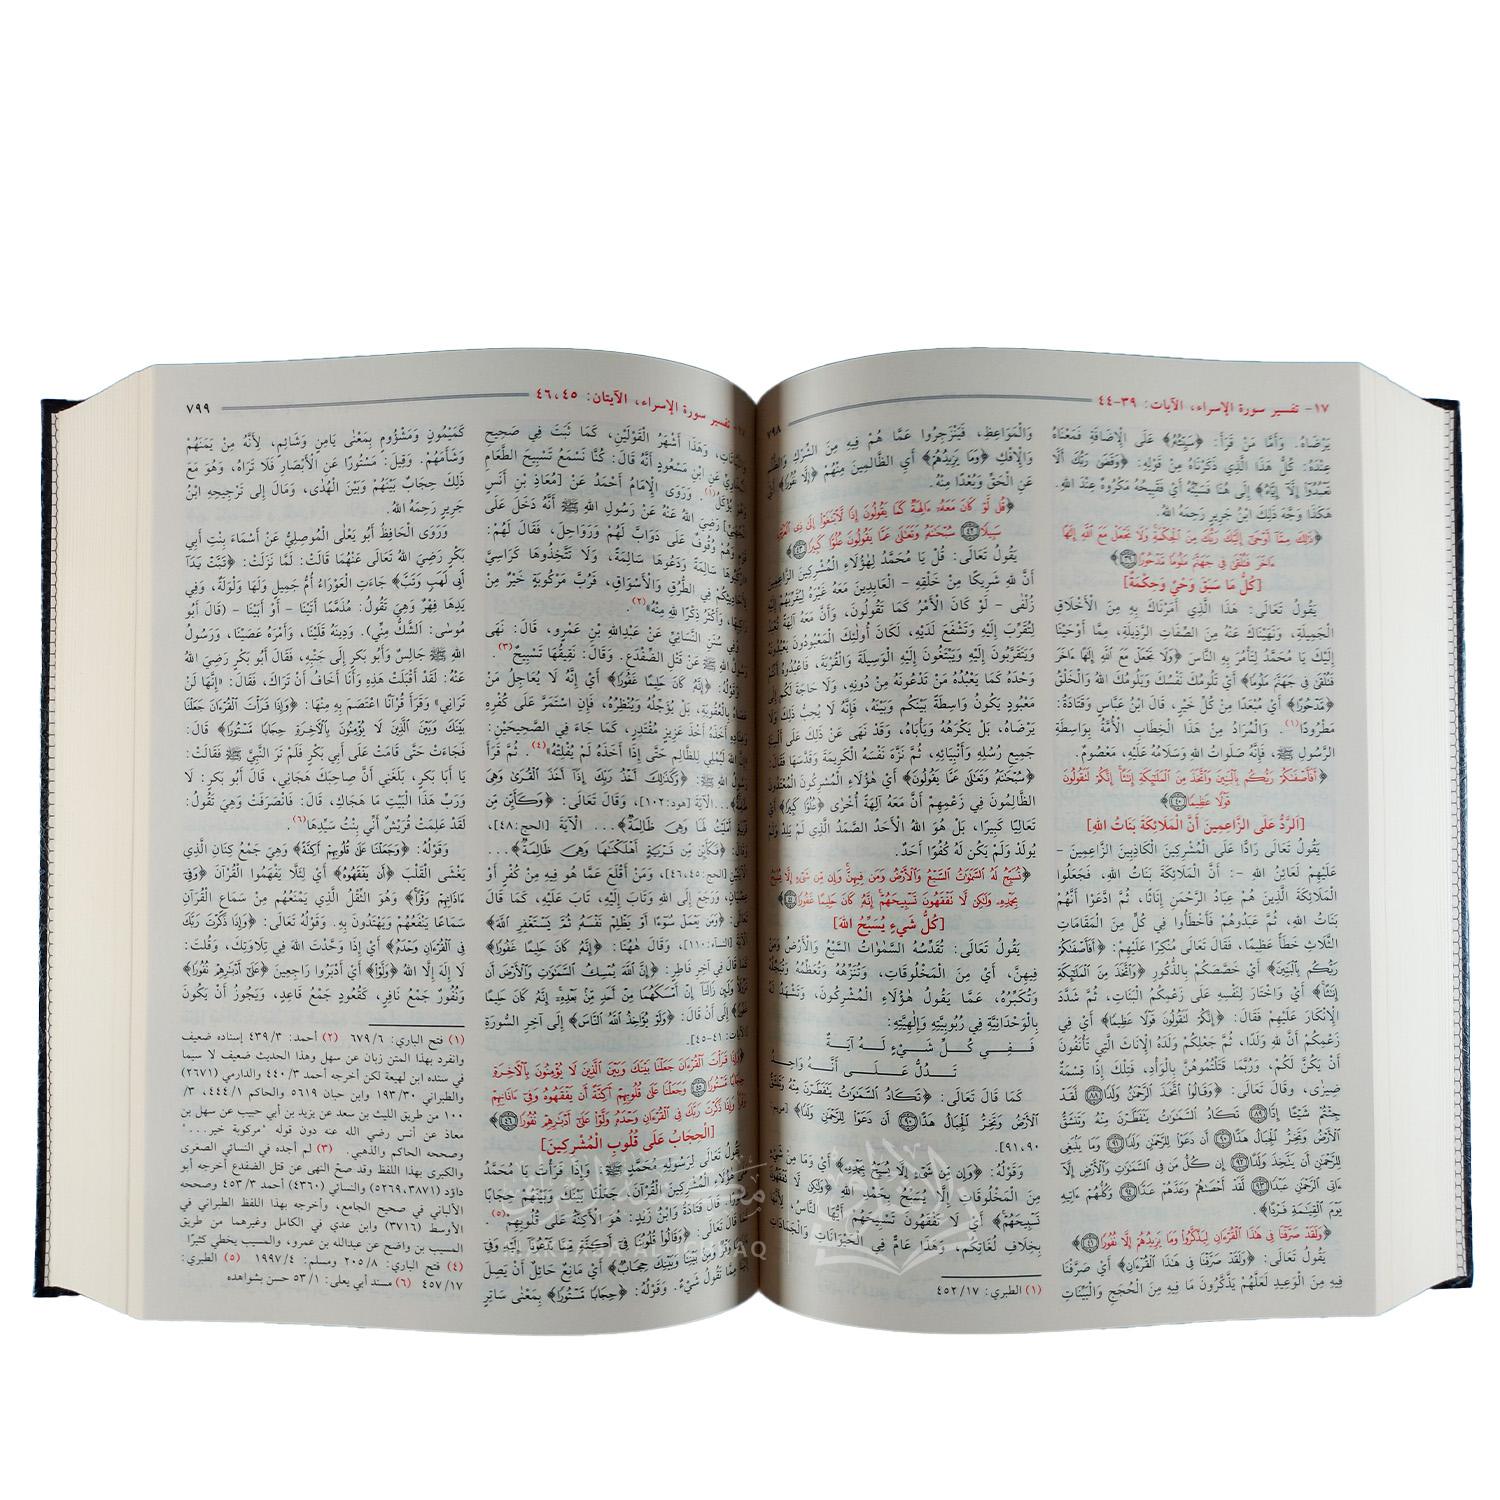 ١٧- تفسير سورة الإسراء، الآيات: ٣٩-٤٤
٧٩٨
يَرْضَاهُ. وَأَمَّا مَنْ قَرَأَ: ﴿سَيِّئُهُ﴾ عَلَى الْإِضَافَةِ فَمَعْنَاهُ
عِنْدَهُ: كُلُّ هَذَا الَّذِي ذَكَرْنَاهُ مِنْ قَوْلِهِ: ﴿وَقَضَىٰ رَبُّكَ أَلَّا
تَعْبُدُوٓا إِلَّآ إِيَّاهُ﴾ إِلَى هُنَا فَسَيِّئُهُ أَيْ فَقَبِيحُهُ مَكْرُوهٌ عِنْدَ اللهِ.
هَكَذَا وَجَّهَ ذَلِكَ ابْنُ جَرِيرٍ رَحِمَهُ اللهُ.
﴿ذَٰلِكَ مِمَّآ أَوْحَىٰٓ إِلَيْكَ رَبُّكَ مِنَ ٱلْحِكْمَةِ وَلَا تَجْعَلْ مَعَ ٱللَّهِ إِلَٰهًا
ءَاخَرَ فَتُلْقَىٰ فِى جَهَنَّمَ مَلُومًا مَّدْحُورًا ٣٩﴾
[كُلُّ مَا سَبَقَ وَحْيٌ وَحِكْمَةٌ]
يَقُولُ تَعَالَى: هَذَا الَّذِي أَمَرْنَاكَ بِهِ مِنَ الْأَخْلَاقِ
الْجَمِيلَةِ، وَنَهَيْنَاكَ عَنْهُ مِنَ الصِّفَاتِ الرَّذِيلَةِ، مِمَّا أَوْحَيْنَا
إِلَيْكَ يَا مُحَمَّدُ لِتَأْمُرَ بِهِ النَّاسَ ﴿وَلَا تَجْعَلْ مَعَ ٱللَّهِ إِلَٰهًا ءَاخَرَ
فَتُلْقَىٰ فِى جَهَنَّمَ مَلُومًا﴾ أَيْ تَلُومُكَ نَفْسُكَ وَيَلُومُكَ اللهُ وَالْخَلْقُ
﴿مَّدْحُورًا﴾ أَيْ مُبْعَدًا مِنْ كُلِّ خَيْرٍ، قَالَ ابْنُ عَبَّاسٍ وَقَتَادَةُ:
مَطْرُودًا(١). وَالْمُرَادُ مِنْ هَذَا الْخِطَابِ الْأُمَّةُ بِوَاسِطَةِ
الرَّسُولِ ﷺ، فَإِنَّهُ صَلَوَاتُ اللهِ وَسَلَامُهُ عَلَيْهِ، مَعْصُومٌ.
﴿أَفَأَصْفَىٰكُمْ رَبُّكُم بِٱلْبَنِينَ وَٱتَّخَذَ مِنَ ٱلْمَلَٰٓئِكَةِ إِنَٰثًا إِنَّكُمْ لَتَقُولُونَ
قَوْلًا عَظِيمًا ٤٠﴾
[اَلرَّدُّ عَلَى الزَّاعِمِينَ أَنَّ الْمَلَائِكَةَ بَنَاتُ اللهِ]
يَقُولُ تَعَالَى رَادًّا عَلَى الْمُشْرِكِينَ الْكَاذِبِينَ الزَّاعِمِينَ -
عَلَيْهِمْ لَعَائِنُ اللهِ -: أَنَّ الْمَلَائِكَةَ بَنَاتُ اللهِ، فَجَعَلُوا
الْمَلَائِكَةَ الَّذِينَ هُمْ عِبَادُ الرَّحْمَنِ إِنَاثًا، ثُمَّ ادَّعَوْا أَنَّهُمْ
بَنَاتُ اللهِ، ثُمَّ عَبَدُوهُمْ فَأَخْطَأُوا فِي كُلٍّ مِنَ الْمَقَامَاتِ
الثَّلَاثِ خَطَأً عَظِيمًا، فَقَالَ تَعَالَى مُنْكِرًا عَلَيْهِمْ: ﴿أَفَأَصْفَىٰكُمْ
رَبُّكُم بِٱلْبَنِينَ﴾ أَيْ خَصَّصَكُمْ بِالذُّكُورِ ﴿وَٱتَّخَذَ مِنَ ٱلْمَلَٰٓئِكَةِ
إِنَٰثًا﴾ أَيْ وَاخْتَارَ لِنَفْسِهِ عَلَى زَعْمِكُمُ الْبَنَاتِ، ثُمَّ شَدَّدَ
الْإِنْكَارَ عَلَيْهِمْ فَقَالَ: ﴿إِنَّكُمْ لَتَقُولُونَ قَوْلًا عَظِيمًا﴾ أَيْ فِي
زَعْمِكُمْ أَنَّ لِلَّهِ وَلَدًا، ثُمَّ جَعَلِكُمْ وَلَدَهُ الْإِنَاثَ الَّتِي تَأْنَفُونَ
أَنْ يَكُنَّ لَكُمْ، وَرُبَّمَا قَتَلْتُمُوهُنَّ بِالْوَأْدِ، فَتِلْكَ إِذًا قِسْمَةٌ
ضِيزَى، وَقَالَ تَعَالَى: ﴿وَقَالُوا۟ ٱتَّخَذَ ٱلرَّحْمَٰنُ وَلَدًا ٨٨ لَّقَدْ
جِئْتُمْ شَيْـًٔا إِدًّا ٨٩ تَكَادُ ٱلسَّمَٰوَٰتُ يَتَفَطَّرْنَ مِنْهُ وَتَنشَقُّ
ٱلْأَرْضُ وَتَخِرُّ ٱلْجِبَالُ هَدًّا ٩٠ أَن دَعَوْا۟ لِلرَّحْمَٰنِ وَلَدًا ٩١ وَمَا يَنۢبَغِى
لِلرَّحْمَٰنِ أَن يَتَّخِذَ وَلَدًا ٩٢ إِن كُلُّ مَن فِى ٱلسَّمَٰوَٰتِ وَٱلْأَرْضِ إِلَّآ
ءَاتِى ٱلرَّحْمَٰنِ عَبْدًا ٩٣ لَّقَدْ أَحْصَىٰهُمْ وَعَدَّهُمْ عَدًّا ٩٤ وَكُلُّهُمْ ءَاتِيهِ
يَوْمَ ٱلْقِيَٰمَةِ فَرْدًا﴾.
﴿وَلَقَدْ صَرَّفْنَا فِى هَٰذَا ٱلْقُرْءَانِ لِيَذَّكَّرُوا۟ وَمَا يَزِيدُهُمْ إِلَّا نُفُورًا ٤١﴾
يَقُولُ تَعَالَى: ﴿وَلَقَدْ صَرَّفْنَا فِى هَٰذَا ٱلْقُرْءَانِ﴾ أَيْ صَرَّفْنَا
فِيهِ مِنَ الْوَعِيدِ لَعَلَّهُمْ يَذَّكَّرُونَ مَا فِيهِ مِنَ الْحُجَجِ وَالْبَيِّنَاتِ
وَالْمَوَاعِظِ، فَيَنْزَجِرُوا عَمَّا هُمْ فِيهِ مِنَ الشِّرْكِ وَالظُّلْمِ
وَالْإِفْكِ ﴿وَمَا يَزِيدُهُمْ﴾ أَيِ الظَّالِمِينَ مِنْهُمْ ﴿إِلَّا نُفُورًا﴾ أَيْ
عَنِ الْحَقِّ وَبُعْدًا مِنْهُ.
﴿قُل لَّوْ كَانَ مَعَهُۥٓ ءَالِهَةٌ كَمَا يَقُولُونَ إِذًا لَّٱبْتَغَوْا۟ إِلَىٰ ذِى ٱلْعَرْشِ
سَبِيلًا ٤٢ سُبْحَٰنَهُۥ وَتَعَٰلَىٰ عَمَّا يَقُولُونَ عُلُوًّا كَبِيرًا ٤٣﴾
يَقُولُ تَعَالَى: قُلْ يَا مُحَمَّدُ لِهَؤُلَاءِ الْمُشْرِكِينَ الزَّاعِمِينَ
أَنَّ لِلَّهِ شَرِيكًا مِنْ خَلْقِهِ - الْعَابِدِينَ مَعَهُ غَيْرَهُ لِيُقَرِّبَهُمْ إِلَيْهِ
زُلْفَى - لَوْ كَانَ الْأَمْرُ كَمَا تَقُولُونَ، وَأَنَّ مَعَهُ آلِهَةً تُعْبَدُ
لِتُقَرِّبَ إِلَيْهِ وَتَشْفَعَ لَدَيْهِ، لَكَانَ أُولَئِكَ الْمَعْبُودُونَ يَعْبُدُونَهُ
وَيَتَقَرَّبُونَ إِلَيْهِ وَيَبْتَغُونَ إِلَيْهِ الْوَسِيلَةَ وَالْقُرْبَةَ، فَاعْبُدُوهُ أَنْتُمْ
وَحْدَهُ كَمَا يَعْبُدُهُ مَنْ تَدْعُونَهُ مِنْ دُونِهِ، وَلَا حَاجَةَ لَكُمْ إِلَى
مَعْبُودٍ يَكُونُ وَاسِطَةً بَيْنَكُمْ وَبَيْنَهُ، فَإِنَّهُ لَا يُحِبُّ ذَلِكَ وَلَا
يَرْضَاهُ، بَلْ يَكْرَهُهُ وَيَأْبَاهُ، وَقَدْ نَهَى عَنْ ذَلِكَ عَلَى أَلْسِنَةِ
جَمِيعِ رُسُلِهِ وَأَنْبِيَائِهِ، ثُمَّ نَزَّهَ نَفْسَهُ الْكَرِيمَةَ وَقَدَّسَهَا فَقَالَ:
﴿سُبْحَٰنَهُۥ وَتَعَٰلَىٰ عَمَّا يَقُولُونَ﴾ أَيْ هَؤُلَاءِ الْمُشْرِكُونَ الْمُعْتَدُونَ
الظَّالِمُونَ فِي زَعْمِهِمْ أَنَّ مَعَهُ آلِهَةً أُخْرَى ﴿عُلُوًّا كَبِيرًا﴾ أَيْ
تَعَالِيًا كَبِيرًا، بَلْ هُوَ اللهُ الْأَحَدُ الصَّمَدُ الَّذِي لَمْ يَلِدْ وَلَمْ
يُولَدْ وَلَمْ يَكُنْ لَهُ كُفُوًا أَحَدٌ.
﴿تُسَبِّحُ لَهُ ٱلسَّمَٰوَٰتُ ٱلسَّبْعُ وَٱلْأَرْضُ وَمَن فِيهِنَّ وَإِن مِّن شَىْءٍ إِلَّا يُسَبِّحُ
بِحَمْدِهِۦ وَلَٰكِن لَّا تَفْقَهُونَ تَسْبِيحَهُمْ إِنَّهُۥ كَانَ حَلِيمًا غَفُورًا ٤٤﴾
[كُلُّ شَيْءٍ يُسَبِّحُ اللهَ]
يَقُولُ تَعَالَى: تُقَدِّسُهُ السَّمٰوَاتُ السَّبْعُ وَالْأَرْضُ وَمَنْ
فِيهِنَّ، أَيْ مِنَ الْمَخْلُوقَاتِ، وَتُنَزِّهُهُ وَتُعَظِّمُهُ وَتُبَجِّلُهُ
وَتُكَبِّرُهُ، عَمَّا يَقُولُ هَؤُلَاءِ الْمُشْرِكُونَ، وَتَشْهَدُ لَهُ
بِالْوَحْدَانِيَّةِ فِي رُبُوبِيَّتِهِ وَإِلٰهِيَّتِهِ:
فَـفِـي كُـلِّ شَـيْءٍ لَـهُ آيَـةٌ
تَـدُلُّ عَـلَـى أَنَّـهُ وَاحِـدُ
كَمَا قَالَ تَعَالَى: ﴿تَكَادُ ٱلسَّمَٰوَٰتُ يَتَفَطَّرْنَ مِنْهُ وَتَنشَقُّ
ٱلْأَرْضُ وَتَخِرُّ ٱلْجِبَالُ هَدًّا ٩٠ أَن دَعَوْا۟ لِلرَّحْمَٰنِ وَلَدًا﴾ [مريم:
٩١،٩٠].
وَقَوْلُهُ: ﴿وَإِن مِّن شَىْءٍ إِلَّا يُسَبِّحُ بِحَمْدِهِۦ﴾ أَيْ وَمَا مِنْ شَيْءٍ
مِنَ الْمَخْلُوقَاتِ، إِلَّا يُسَبِّحُ بِحَمْدِ اللهِ ﴿وَلَٰكِن لَّا تَفْقَهُونَ
تَسْبِيحَهُمْ﴾ أَيْ لَا تَفْقَهُونَ تَسْبِيحَهُمْ أَيُّهَا النَّاسُ، لِأَنَّهَا
بِخِلَافِ لُغَاتِكُمْ، وَهَذَا عَامٌّ فِي الْحَيَوَانَاتِ وَالْجَمَادَاتِ
(١) الطبري: ٤٥٢/١٧
تفسير سورة الإسراء، الآيتان: ٤٦،٤٥
٧٩٩
وَهَذَا أَشْهَرُ الْقَوْلَيْنِ، كَمَا ثَبَتَ فِي صَحِيحِ
عَنِ ابْنِ مَسْعُودٍ أَنَّهُ قَالَ: كُنَّا نَسْمَعُ تَسْبِيحَ الطَّعَامِ
وَهُوَ يُؤْكَلُ(١). وَرَوَى الْإِمَامُ أَحْمَدُ عَنْ [مُعَاذِ بْنِ أَنَسٍ
رَضِيَ اللهُ عَنْهُ عَنْ رَسُولِ اللهِ ﷺ أَنَّهُ دَخَلَ عَلَى
وَهُمْ وُقُوفٌ عَلَى دَوَابَّ لَهُمْ وَرَوَاحِلَ، فَقَالَ لَهُمُ:
سَالِمَةً وَدَعُوهَا سَالِمَةً، وَلَا تَتَّخِذُوهَا كَرَاسِيَّ
لِأَحَادِيثِكُمْ فِي الطُّرُقِ وَالْأَسْوَاقِ، فَرُبَّ مَرْكُوبَةٍ خَيْرٌ مِنْ
وَأَكْثَرُ ذِكْرًا لِلَّهِ مِنْهُ»(٢).
سُنَنِ النَّسَائِيِّ عَنْ عَبْدِاللهِ بْنِ عَمْرٍو، قَالَ: نَهَى
رَسُولُ اللهِ ﷺ عَنْ قَتْلِ الضِّفْدَعِ. وَقَالَ: نَقِيقُهَا تَسْبِيحٌ(٣).
وَقَوْلُهُ: ﴿إِنَّهُۥ كَانَ حَلِيمًا غَفُورًا﴾ أَيْ إِنَّهُ لَا يُعَاجِلُ مَنْ
بِالْعُقُوبَةِ، بَلْ يُؤَجِّلُهُ وَيُنْظِرُهُ، فَإِنِ اسْتَمَرَّ عَلَى كُفْرِهِ
أَخَذَهُ أَخْذَ عَزِيزٍ مُقْتَدِرٍ، كَمَا جَاءَ فِي الصَّحِيحَيْنِ:
اللهَ لَيُمْلِي لِلظَّالِمِ حَتَّى إِذَا أَخَذَهُ لَمْ يُفْلِتْهُ»(٤). ثُمَّ قَرَأَ
رَسُولُ اللهِ ﷺ: ﴿وَكَذَٰلِكَ أَخْذُ رَبِّكَ إِذَآ أَخَذَ ٱلْقُرَىٰ وَهِىَ
الْآيَةَ [هود:١٠٢]، وَقَالَ تَعَالَى: ﴿وَكَأَيِّن مِّن
قَرْيَةٍ أَمْلَيْتُ لَهَا وَهِىَ ظَالِمَةٌ﴾... الْآيَةَ [الحج:٤٨]،
وَقَالَ: ﴿فَكَأَيِّن مِّن قَرْيَةٍ أَهْلَكْنَٰهَا وَهِىَ ظَالِمَةٌ﴾...
[الحج:٤٥،٤٦]، وَمَنْ أَقْلَعَ عَمَّا هُوَ فِيهِ مِنْ كُفْرٍ أَوْ
عِصْيَانٍ، وَرَجَعَ إِلَى اللهِ وَتَابَ إِلَيْهِ، تَابَ عَلَيْهِ، كَمَا قَالَ
﴿وَمَن يَعْمَلْ سُوٓءًا أَوْ يَظْلِمْ نَفْسَهُۥ ثُمَّ يَسْتَغْفِرِ ٱللَّهَ﴾
[النساء:١١٠]، وَقَالَ هٰهُنَا: ﴿إِنَّهُۥ كَانَ حَلِيمًا غَفُورًا﴾
كَمَا قَالَ فِي آخِرِ فَاطِرٍ: ﴿إِنَّ ٱللَّهَ يُمْسِكُ ٱلسَّمَٰوَٰتِ وَٱلْأَرْضَ أَن
تَزُولَا وَلَئِن زَالَتَآ إِنْ أَمْسَكَهُمَا مِنْ أَحَدٍ مِّنۢ بَعْدِهِۦٓ إِنَّهُۥ كَانَ حَلِيمًا
غَفُورًا﴾ إِلَى أَنْ قَالَ: ﴿وَلَوْ يُؤَاخِذُ ٱللَّهُ ٱلنَّاسَ﴾ إِلَى آخِرِ السُّورَةِ
٤١-٤٥].
﴿وَإِذَا قَرَأْتَ ٱلْقُرْءَانَ جَعَلْنَا بَيْنَكَ وَبَيْنَ ٱلَّذِينَ لَا يُؤْمِنُونَ بِٱلْأَخِرَةِ
حِجَابًا مَّسْتُورًا ٤٥ وَجَعَلْنَا عَلَىٰ قُلُوبِهِمْ أَكِنَّةً أَن يَفْقَهُوهُ وَفِىٓ ءَاذَانِهِمْ
وَقْرًا وَإِذَا ذَكَرْتَ رَبَّكَ فِى ٱلْقُرْءَانِ وَحْدَهُۥ وَلَّوْا۟ عَلَىٰٓ أَدْبَٰرِهِمْ نُفُورًا ٤٦﴾
[اَلْحِجَابُ عَلَى قُلُوبِ الْمُشْرِكِينَ]
يَقُولُ تَعَالَى لِرَسُولِهِ مُحَمَّدٍ ﷺ: وَإِذَا قَرَأْتَ يَا مُحَمَّدُ
عَلَى هَؤُلَاءِ الْمُشْرِكِينَ الْقُرْآنَ، جَعَلْنَا بَيْنَكَ وَبَيْنَهُمْ حِجَابًا
قَالَ قَتَادَةُ وَابْنُ زَيْدٍ: هُوَ الْأَكِنَّةُ عَلَى قُلُوبِهِمْ(٥).
كَمَا قَالَ تَعَالَى: ﴿وَقَالُوا۟ قُلُوبُنَا فِىٓ أَكِنَّةٍ مِّمَّا تَدْعُونَآ إِلَيْهِ وَفِىٓ
وَمِنۢ بَيْنِنَا وَبَيْنِكَ حِجَابٌ﴾ أَيْ مَانِعٌ حَائِلٌ أَنْ يَصِلَ
مِمَّا تَقُولُ شَيْءٌ. وَقَوْلُهُ: ﴿حِجَابًا مَّسْتُورًا﴾ بِمَعْنَى سَاتِرٍ
كَمَيْمُونٍ وَمَشْؤُومٍ بِمَعْنَى يَامِنٍ وَشَائِمٍ، لِأَنَّهُ مِنْ يَمَنَهُمْ
وَشَأَمَهُمْ. وَقِيلَ: مَسْتُورًا عَنِ الْأَبْصَارِ فَلَا تَرَاهُ، وَهُوَ مَعَ
ذَلِكَ حِجَابٌ بَيْنَهُمْ وَبَيْنَ الْهُدَى، وَمَالَ إِلَى تَرْجِيحِهِ ابْنُ
جَرِيرٍ رَحِمَهُ اللهُ.
وَرَوَى الْحَافِظُ أَبُو يَعْلَى الْمُوصِلِيُّ عَنْ أَسْمَاءَ بِنْتِ أَبِي
بَكْرٍ رَضِيَ اللهُ تَعَالَى عَنْهُمَا قَالَتْ: لَمَّا نَزَلَتْ: ﴿تَبَّتْ يَدَآ
أَبِى لَهَبٍ وَتَبَّ﴾ جَاءَتِ الْعَوْرَاءُ أُمُّ جَمِيلٍ وَلَهَا وَلْوَلَةٌ، وَفِي
يَدِهَا فِهْرٌ وَهِيَ تَقُولُ: مُذَمَّمًا أَتَيْنَا - أَوْ أَبَيْنَا - (قَالَ أَبُو
مُوسَى: اَلشَّكُّ مِنِّي). وَدِينَهُ قَلَيْنَا، وَأَمْرَهُ عَصَيْنَا، وَرَسُولُ
اللهِ ﷺ جَالِسٌ وَأَبُو بَكْرٍ إِلَى جَنْبِهِ، فَقَالَ أَبُو بَكْرٍ رَضِيَ اللهُ
عَنْهُ: لَقَدْ أَقْبَلَتْ هَذِهِ وَأَنَا أَخَافُ أَنْ تَرَاكَ، فَقَالَ: «إِنَّهَا لَنْ
تَرَانِي» وَقَرَأَ قُرْآنًا اعْتَصَمَ بِهِ مِنْهَا: ﴿وَإِذَا قَرَأْتَ ٱلْقُرْءَانَ جَعَلْنَا
بَيْنَكَ وَبَيْنَ ٱلَّذِينَ لَا يُؤْمِنُونَ بِٱلْأَخِرَةِ حِجَابًا مَّسْتُورًا﴾ قَالَ:
فَجَاءَتْ حَتَّى قَامَتْ عَلَى أَبِي بَكْرٍ فَلَمْ تَرَ النَّبِيَّ ﷺ فَقَالَتْ:
يَا أَبَا بَكْرٍ، بَلَغَنِي أَنَّ صَاحِبَكَ هَجَانِي، قَالَ أَبُو بَكْرٍ: لَا
وَرَبِّ هَذَا الْبَيْتِ مَا هَجَاكِ، قَالَ: فَانْصَرَفَتْ وَهِيَ تَقُولُ:
لَقَدْ عَلِمَتْ قُرَيْشٌ أَنِّي بِنْتُ سَيِّدِهَا(٦).
وَقَوْلُهُ: ﴿وَجَعَلْنَا عَلَىٰ قُلُوبِهِمْ أَكِنَّةً﴾ وَهِيَ جَمْعُ كِنَانٍ الَّذِي
يَغْشَى الْقَلْبَ ﴿أَن يَفْقَهُوهُ﴾ أَيْ لِئَلَّا يَفْهَمُوا الْقُرْآنَ ﴿وَفِىٓ
ءَاذَانِهِمْ وَقْرًا﴾ وَهُوَ الثِّقْلُ الَّذِي يَمْنَعُهُمْ مِنْ سَمَاعِ الْقُرْآنِ
سَمَاعًا يَنْفَعُهُمْ وَيَهْتَدُونَ بِهِ. وَقَوْلُهُ تَعَالَى: ﴿وَإِذَا ذَكَرْتَ رَبَّكَ
فِى ٱلْقُرْءَانِ وَحْدَهُۥ﴾ أَيْ إِذَا وَحَّدْتَ اللهَ فِي تِلَاوَتِكَ، وَقُلْتَ:
لَا إِلَهَ إِلَّا اللهُ ﴿وَلَّوْا۟﴾ أَيْ أَدْبَرُوا رَاجِعِينَ ﴿عَلَىٰٓ أَدْبَٰرِهِمْ نُفُورًا﴾
وَنُفُورٌ جَمْعُ نَافِرٍ، كَقُعُودٍ جَمْعُ قَاعِدٍ، وَيَجُوزُ أَنْ يَكُونَ
(١) فتح الباري: ٦٧٩/٦ (٢) أحمد: ٤٣٩/٣ إسناده ضعيف
وانفرد بهذا المتن زبان عن سهل وهذا الحديث ضعيف لا سيما
في سنده ابن لهيعة لكن أخرجه أحمد ٤٤٠/٣ والدارمي (٢٦٧١)
والطبراني ١٩٣/٣٠ وابن حبان ٥٦١٩ والحاكم ٤٤٤/١، ٣/
١٠٠ من طريق الليث بن سعد عن يزيد بن أبي حبيب عن سهل بن
معاذ عن أنس رضي الله عنه دون قوله "مركوبة خير..."
وصححه الحاكم والذهبي. (٣) لم أجده في النسائي الصغرى
والكبرى بهذا اللفظ وقد صح النهى عن قتل الضفدع أخرجه أبو
داؤد (٥٢٦٩،٣٨٧١) والنسائي (٤٣٦٠) أحمد ٤٥٣/٣ وصححه
الألباني في صحيح الجامع، وأخرجه بهذا اللفظ الطبراني في
الأوسط (٣٧١٦) وابن عدي في الكامل وغيرهما من طريق
المسيب بن واضح عن عبدالله بن عمرو، والمسيب يخطي كثيرًا
(٤) فتح الباري: ٢٠٥/٨ ومسلم: ١٩٩٧/٤ (٥) الطبري:
٤٥٧/١٧ (٦) مسند أبي يعلى: ٥٣/١ حسن بشواهده
MAKTABA AL-ISHRAQ